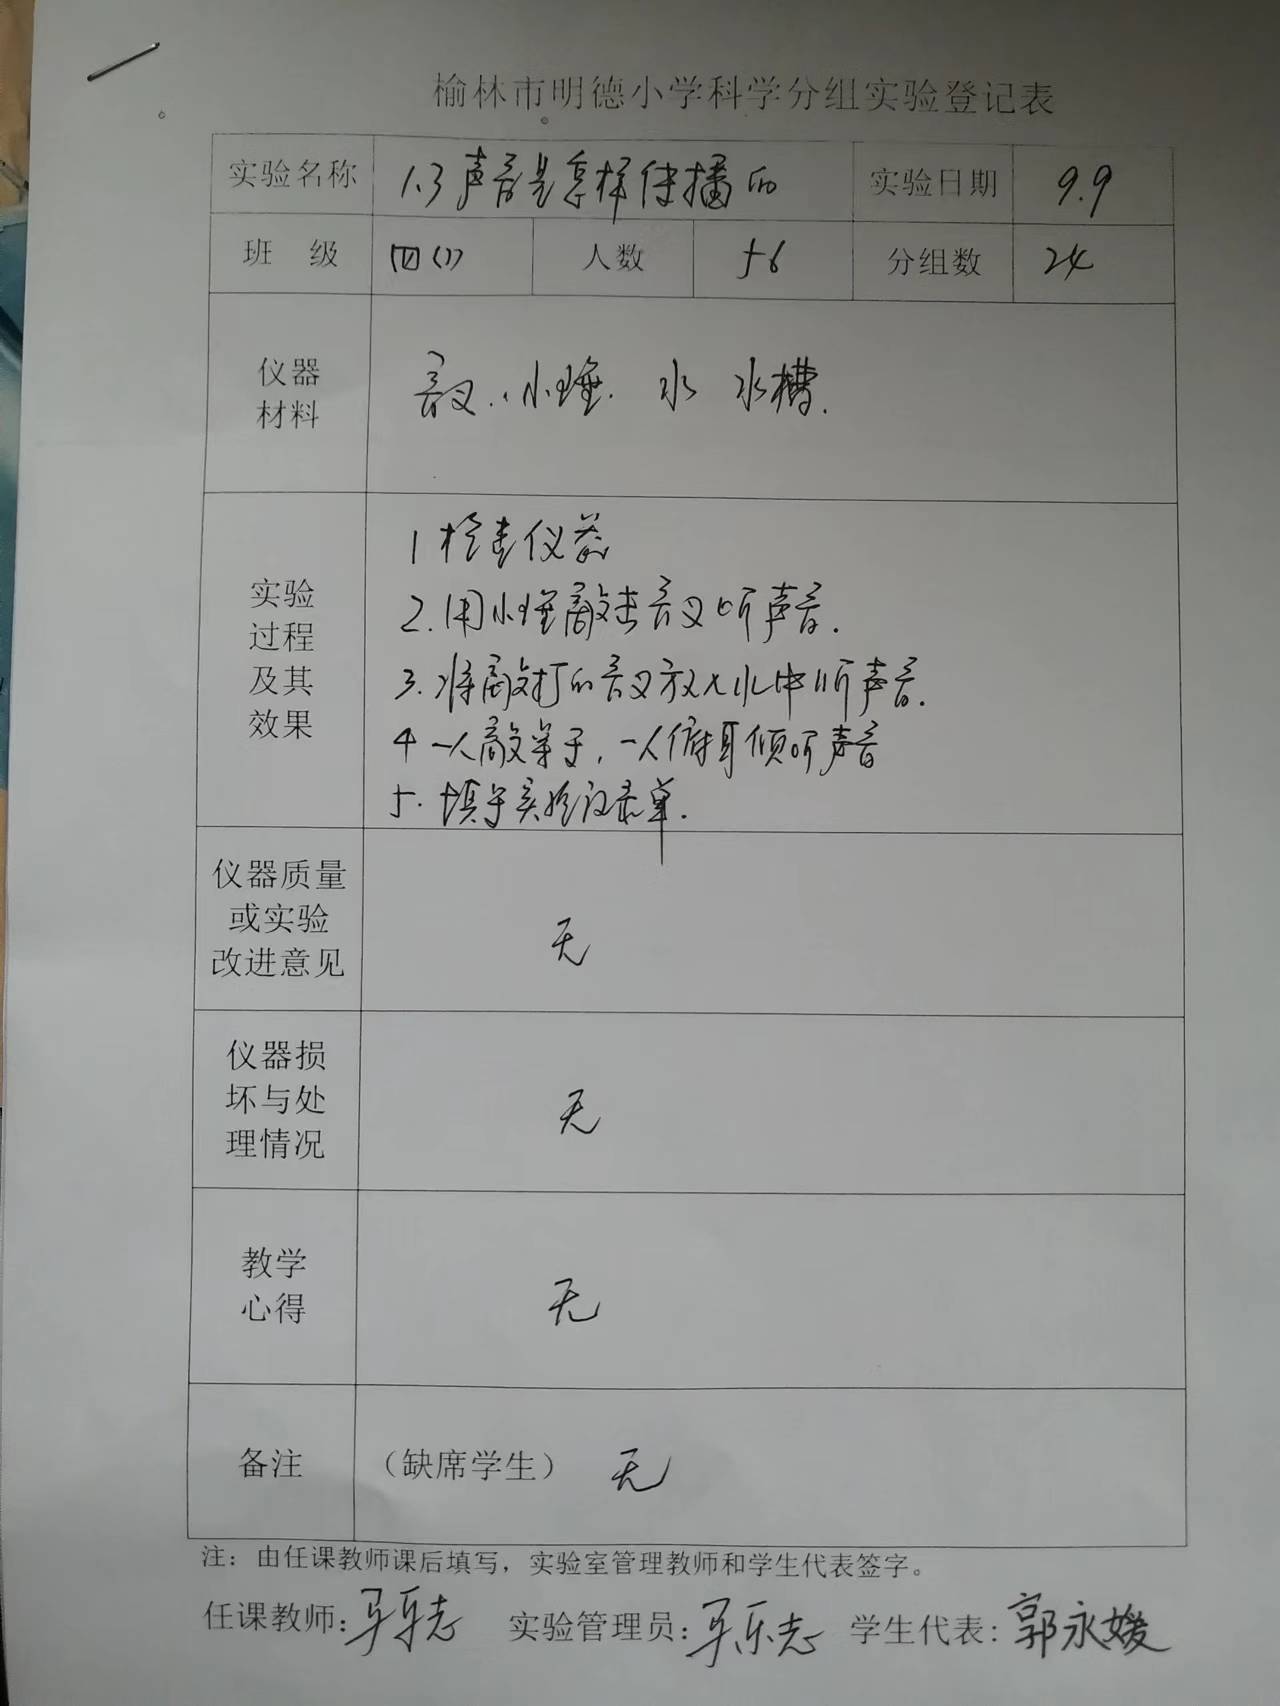 榆林市明德小学科学分组实验登记表
实验名称 1.3声音是怎样传播的 实验日期 9.9
班 级 四(1) 人数 56 分组数 24
仪器材料 音叉、小锤. 水 水槽.
实验过程及其效果
1 检查仪器
2.用小锤敲击音叉听声音.
3.将敲打的音叉放入水中听声音.
4 一人敲桌子,一人俯耳倾听声音
5.填写实验记录单.
仪器质量或实验改进意见 无
仪器损坏与处理情况 无
教学心得 无
备注 （缺席学生） 无
注：由任课教师课后填写，实验室管理教师和学生代表签字。
任课教师: 马乐志 实验管理员: 马乐志 学生代表: 郭永媛